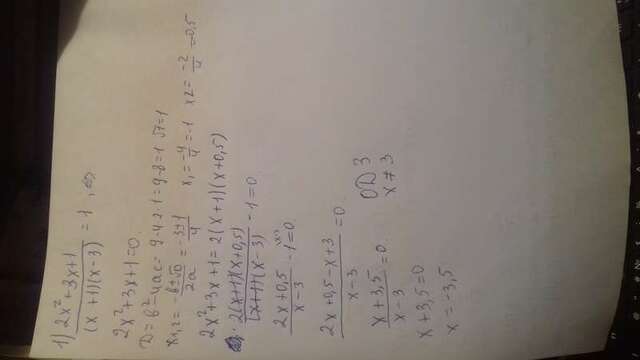 1) (2x²+3x+1)/((x+1)(x-3)) = 1, ⇔
2x²+3x+1=0
D=b²-4ac= 9-4·2·1=9-8=1 √1=1
x1,2= (-b±√D)/2a = (-3±1)/4 x₁= -4/4=-1 x2= -2/4 =-0,5
2x²+3x+1=2(x+1)(x+0,5)
(2(x+1)(x+0,5))/((x+1)(x-3)) -1=0
(2x+0,5)/(x-3) -1=0
(2x+0,5-x+3)/(x-3) =0
(x+3,5)/(x-3) =0
ОДЗ
x≠3
x+3,5=0
x=-3,5